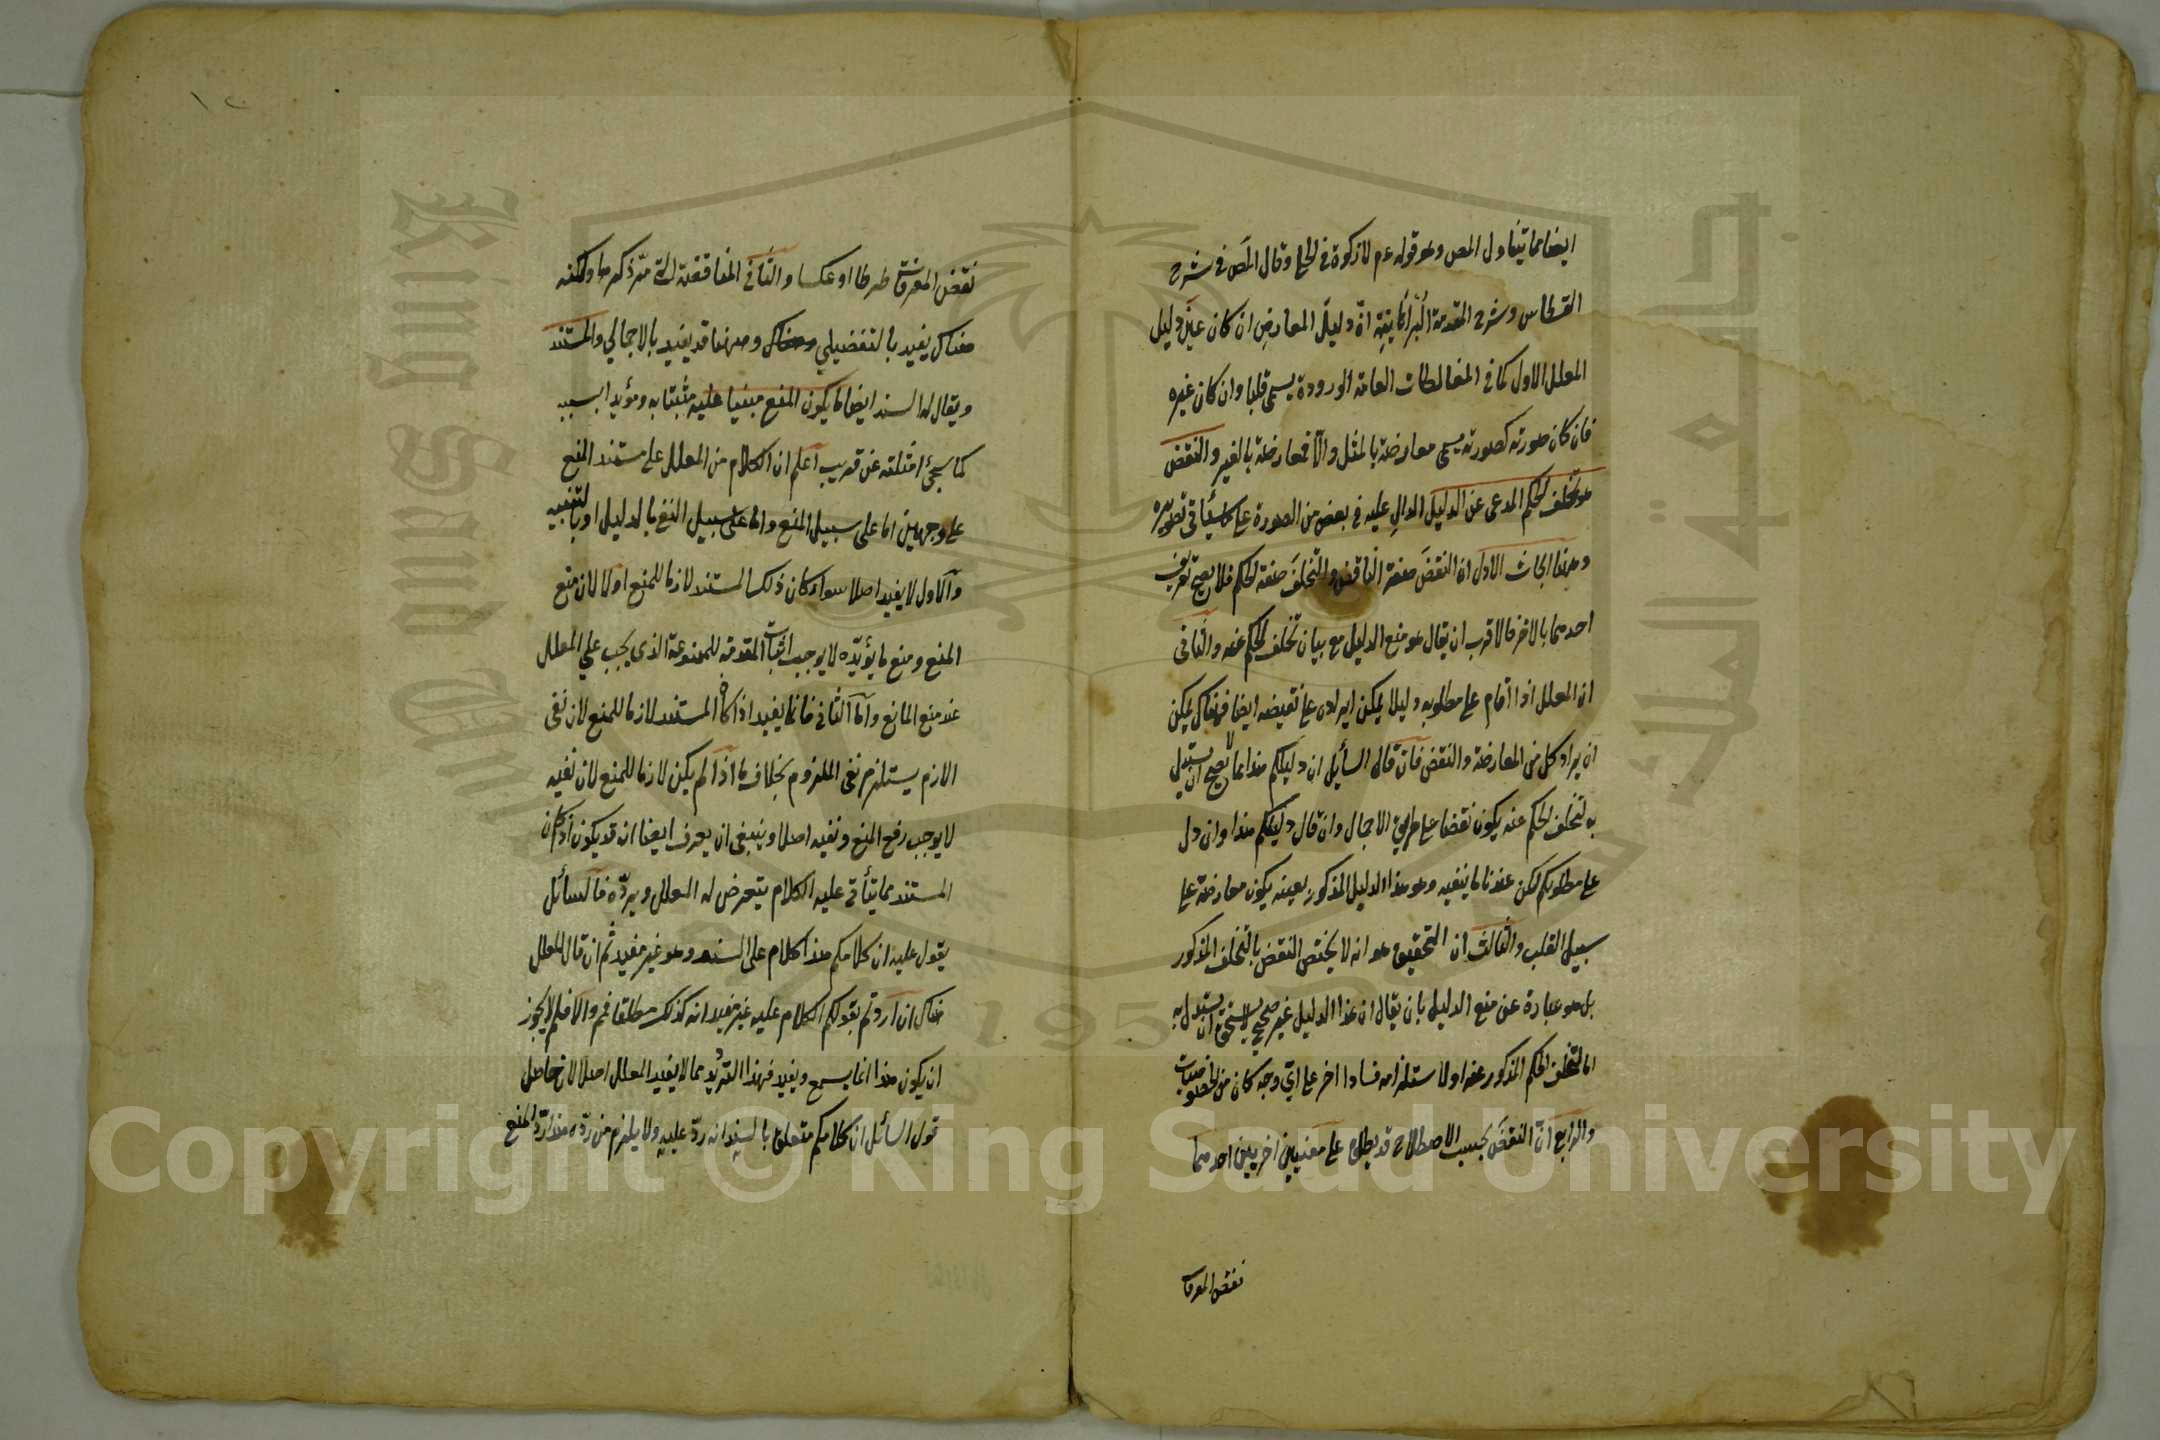 ايضا مما يتناول المص وهو قوله عم لا زكوة فى الحلى وقال المص فى شرح
القسطاس وشرح المقدمة البرهانية ان دليل المعارض ان كان عين دليل
المعلل الاول كما فى المغالطات العامة الورودة يسمى قلبا وان كان غيره
فان كان صورته كصورته يسمى معارضة بالمثل والا فمعارضة بالغير والنقض
هو تخلف الحكم المدعى عن الدليل الدال عليه فى بعض من الصورة على ما سيأتى تقريره
وههنا ابحاث الاول ان النقض صفة الناقض والتخلف صفة الحكم فلا يصح تعريف
احدهما بالاخر فالاقرب ان يقال هو منع الدليل مع بيان تخلف الحكم عنه والثانى
ان المعلل اذا اقام على مطلوبه دليلا يمكن ايراده على نقيضه ايضا فهناك يمكن
ان يراد كل من المعارضة والنقض فان قال السائل ان دليلكم هذا مما لا يصح ان يستدل
به لتخلف الحكم عنه يكون نقضا على طريق الاجمال وان قال دليلكم هذا وان دل
على مطلوبكم لكن عندنا ما ينفيه وهو هذا الدليل المذكور بعينه يكون معارضة على
سبيل القلب والثالث ان التحقيق هو انه لا يختص النقض بالتخلف المذكور
بل هو عبارة عن منع الدليل بان يقال ان هذا الدليل غير صحيح لا يستحق ان يستدل به
اما لتخلف الحكم المذكور عنه او لاستلزامه فسادا اخر على اى وجه كان من الخصوصيات
والرابع ان النقض بحسب الاصطلاح قد يطلق على معنيين اخريين احدهما
نقض المعرفات
١٢
نقض المعرفات طردا او عكسا والثانى المناقضة التى مر ذكرها ولكنه
هناك يقيد بالتفضيلي وههنا قد يقيد بالاجمالي والمستند
ويقال له السند ايضا ما يكون المنع مبنيا عليه مثبتا به ومؤيدا بسببه
كما سيجئ امثلته عن قريب اعلم ان الكلام من المعلل على مستند المنع
على وجهين اما على سبيل المنع واما على سبيل النفى بالدليل او بالتنبيه
والاول لا يفيد اصلا سواء كان ذلك المستند لازما للمنع او لا لان منع
المنع ومنع ما يؤيده لا يوجب اثبات المقدمة الممنوعة الذى يجب علي المعلل
عند منع المانع واما الثانى فانما يفيد اذا كان المستند لازما للمنع لان نفى
الازم يستلزم نفى الملزوم بخلاف ما اذا لم يكن لازما للمنع لان نفيه
لا يوجب رفع المنع ونفيه اصلا وينبغى ان يعرف ايضا انه قد يكون اذا كان
المستند مما يتأتى عليه الكلام يتعرض له المعلل ويرده فالسائل
يقول عليه ان كلامكم هذا كلام على السند وهو غير مفيد ثم ان قال المعلل
هناك ان اردتم بقولكم الكلام عليه غير مفيد انه كذلك مطلقا فمم والا فلم لا يجوز
ان يكون هذا انما يسمع ويفيد فهذا الترديد مما لا يفيد المعلل اصلا لان حاصل
قول السائل ان كلامكم متعلق بالسند انه رد عليه ولا يلزم من رده هذا رد المنع
Copyright © King Saud University